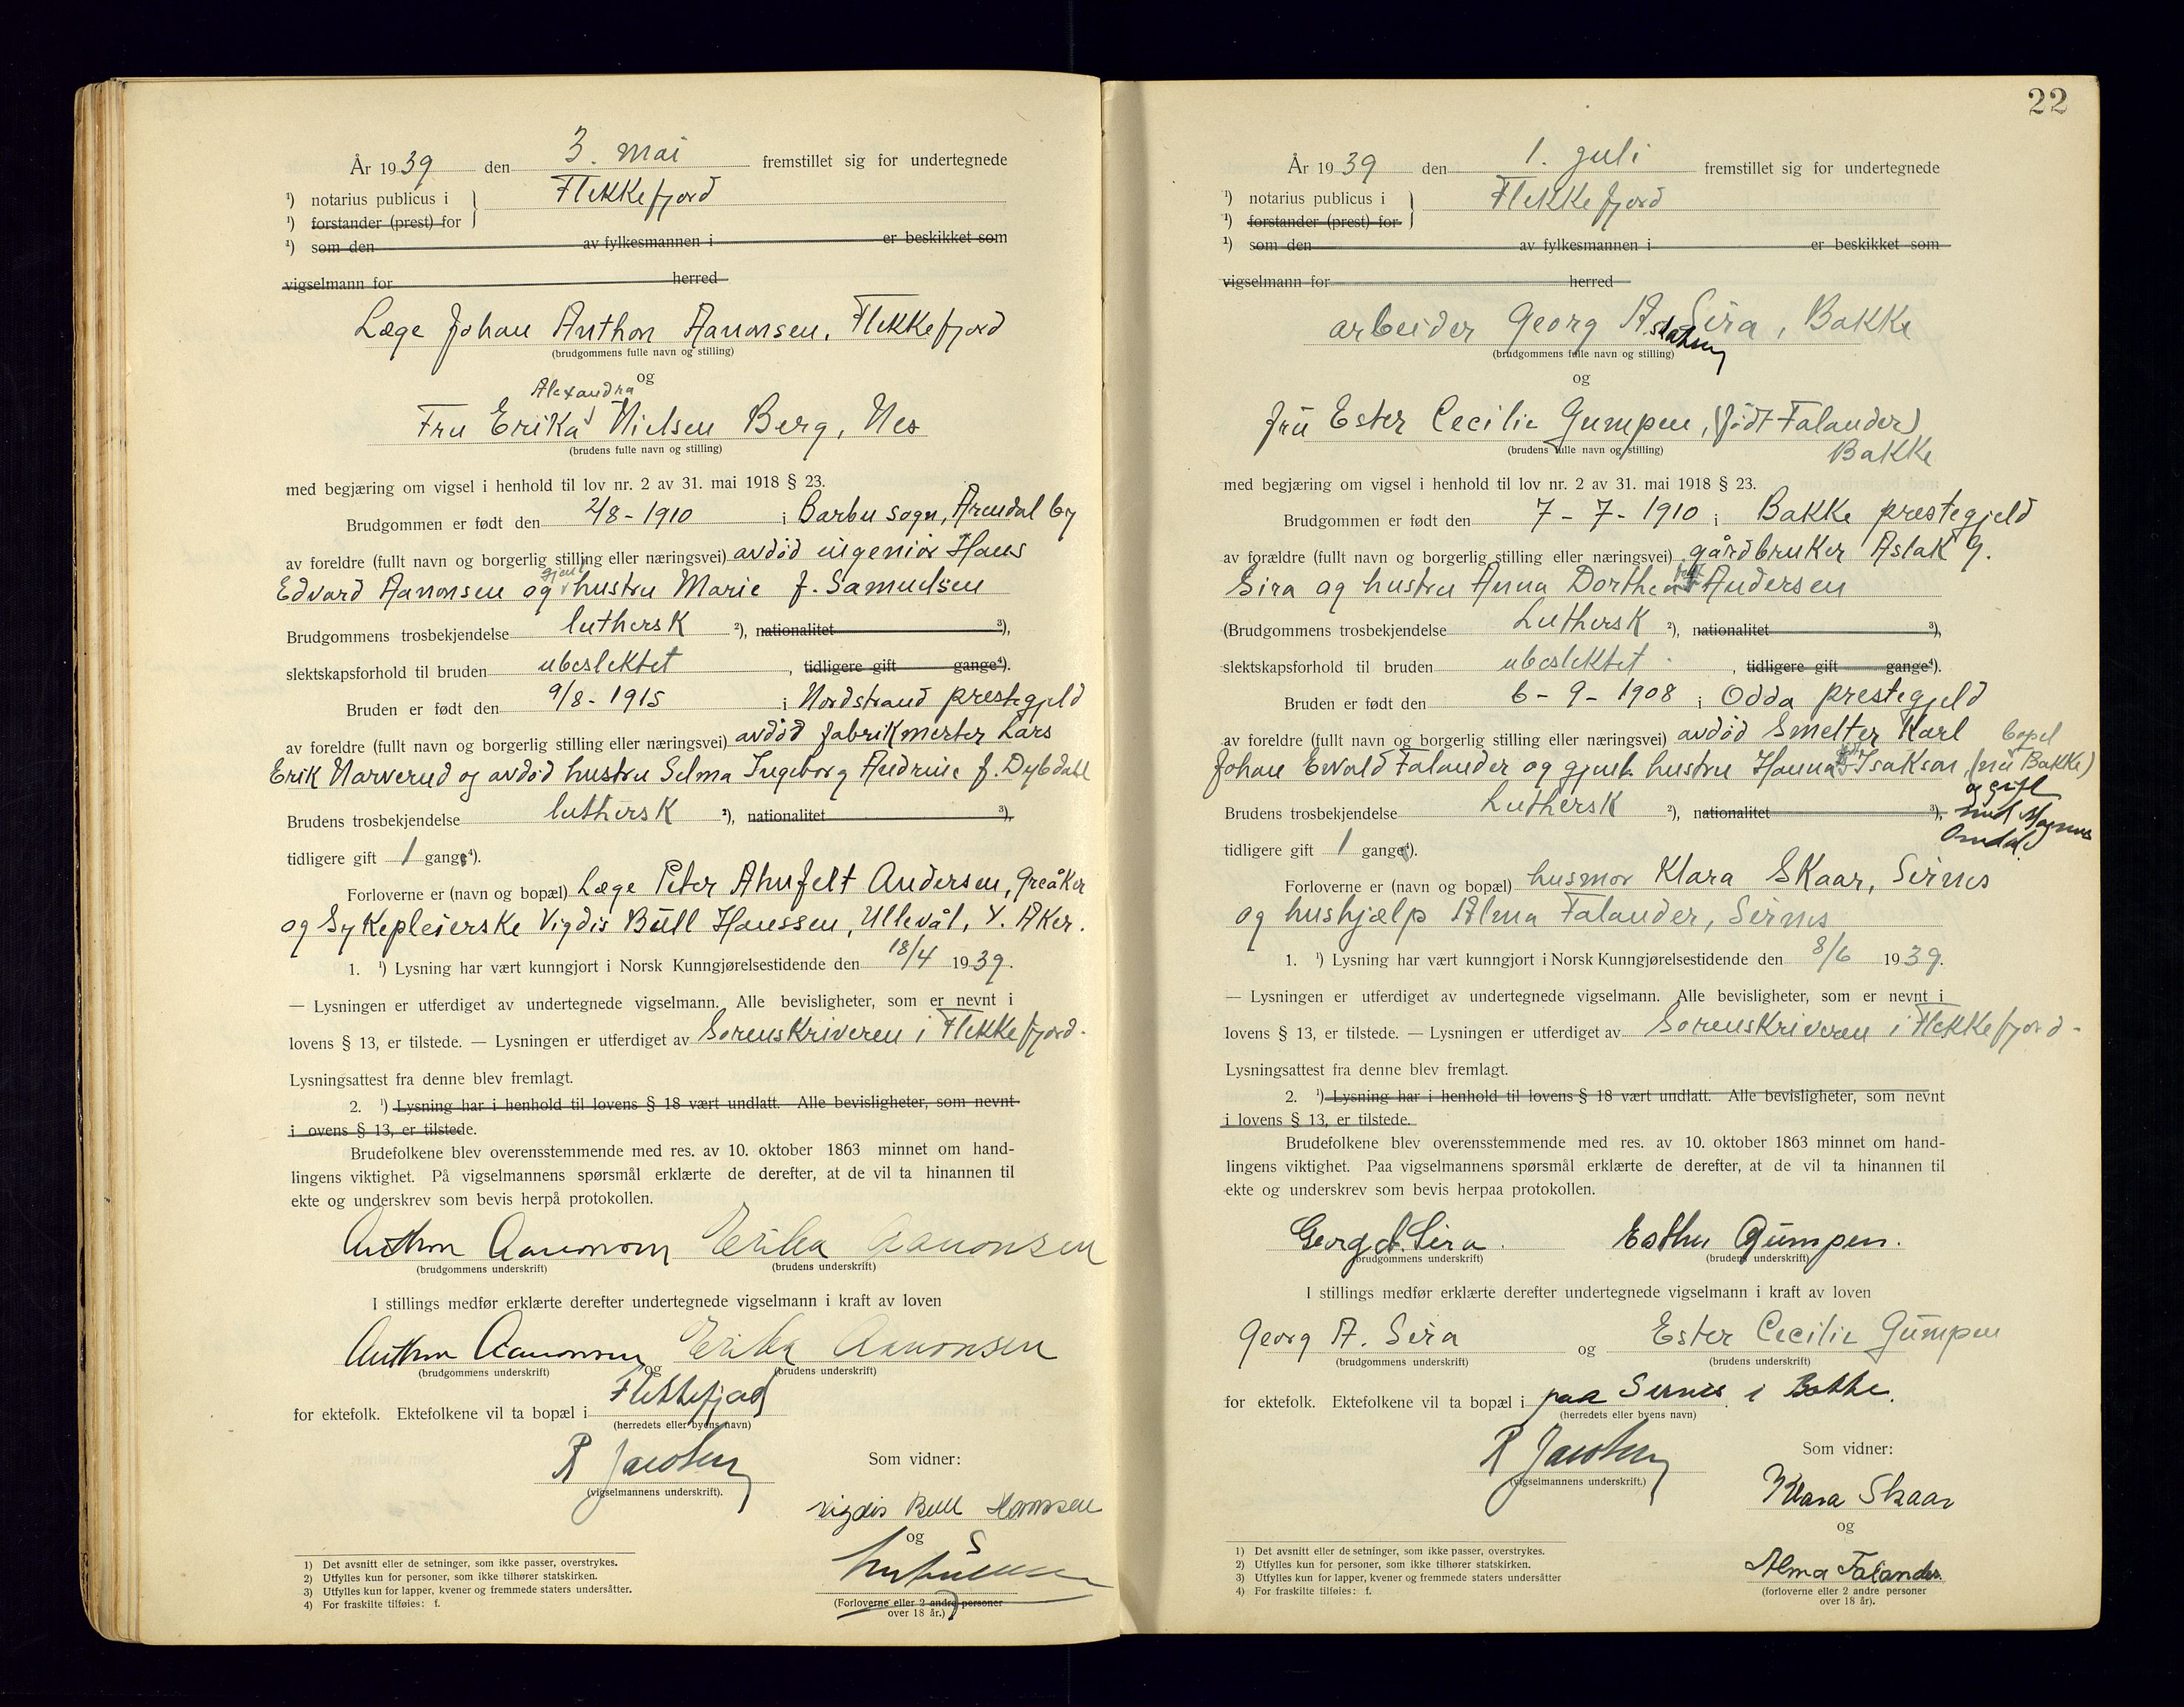 År 1939 den 3. mai fremstillet sig for undertegnede
¹) notarius publicus i Flekkefjord
¹) forstander (prest) for
¹) som den av fylkesmannen i er beskikket som
vigselmann for herred
Læge Johan Anthon Aanonsen, Flekkefjord
(brudgommens fulle navn og stilling)
og
Alexandra
Fru Erika Nielsen Berg, Nes
(brudens fulle navn og stilling)
med begjæring om vigsel i henhold til lov nr. 2 av 31. mai 1918 § 23.
Brudgommen er født den 2/8 - 1910 i Barbu sogn, Arendal by
av foreldre (fullt navn og borgerlig stilling eller næringsvei) avdød ingeniør Hans
gjenl.
Edvard Aanonsen og hustru Marie f. Samuelsen
Brudgommens trosbekjendelse luthersk ²), nationalitet ³),
slektskapsforhold til bruden ubeslektet , tidligere gift gange⁴).
Bruden er født den 9/8 - 1915 i Nordstrand prestegjeld
av foreldre (fullt navn og borgerlig stilling eller næringsvei) avdød fabrikmester Lars
Erik Narverud og avdød hustru Selma Ingeborg Andrine f. Dybdahl
Brudens trosbekjendelse luthersk ²), nationalitet ³),
tidligere gift 1 gang⁴).
Forloverne er (navn og bopæl) Læge Peter Ahnfelt Andersen, Greåker
og Sykepleierske Vigdis Bull Hanssen, Ullevål, V. Aker.
1. ¹) Lysning har vært kunngjort i Norsk Kunngjørelsestidende den 18/4 1939.
— Lysningen er utferdiget av undertegnede vigselmann. Alle bevisligheter, som er nevnt i
lovens § 13, er tilstede. — Lysningen er utferdiget av Sorenskriveren i Flekkefjord -
Lysningsattest fra denne blev fremlagt.
2. ¹) Lysning har i henhold til lovens § 18 vært undlatt. Alle bevisligheter, som nevnt
i ovens § 13, er tilstede.
Brudefolkene blev overensstemmende med res. av 10. oktober 1863 minnet om hand-
lingens viktighet. På vigselmannens spørsmål erklærte de derefter, at de vil ta hinannen til
ekte og underskrev som bevis herpå protokollen.
Anthon Aanonsen Erika Aanonsen
(brudgommens underskrift) (brudens underskrift)
I stillings medfør erklærte derefter undertegnede vigselmann i kraft av loven
Anthon Aanonsen og Erika Aanonsen
(brudgommens underskrift) (brudens underskrift)
for ektefolk. Ektefolkene vil ta bopæl i Flekkefjord
(herredets eller byens navn)
R Jacobsen
(vigselmannens underskrift).
Som vidner:
Vigdis Bull Hanssen
og
(Forloverne eller 2 andre personer
over 18 år.)
1) Det avsnitt eller de setninger, som ikke passer, overstrykes.
2) Utfylles kun for personer, som ikke tilhører statskirken.
3) Utfylles kun for lapper, kvener og fremmede staters undersåtter.
4) For fraskilte tilføies: f.
22
År 1939 den 1. juli fremstillet sig for undertegnede
¹) notarius publicus i Flekkefjord
¹) forstander (prest) for
¹) som den av fylkesmannen i er beskikket som
vigselmann for herred
arbeider Georg A. Sira, Bakke
(brudgommens fulle navn og stilling)
og
fru Ester Cecilie Gumpen, (født Falander)
(brudens fulle navn og stilling) Bakke
med begjæring om vigsel i henhold til lov nr. 2 av 31. mai 1918 § 23.
Brudgommen er født den 7 - 7 - 1910 i Bakke prestegjeld
av forældre (fullt navn og borgerlig stilling eller næringsvei) gårdbruker Aslak G.
Sira og hustru Anna Dorthea født Andersen
(Brudgommens trosbekjendelse Luthersk ²), nationalitet ³),
slektskapsforhold til bruden ubeslektet , tidligere gift gange⁴).
Bruden er født den 6 - 9 - 1908 i Odda prestegjeld
av foreldre (fullt navn og borgerlig stilling eller næringsvei) avdød Smelter Karl bopel
Johan Ewald Falander og gjenl. hustru Hanna født Isaksen, (nu Bakke)
og gift
med Magnus
Omdal.
Brudens trosbekjendelse Luthersk ²), nationalitet ³),
tidligere gift 1 gang⁴).
Forloverne er (navn og bopæl) husmor Klara Skaar, Sirnes
og hushjælp Alma Falander, Sirnes
1. ¹) Lysning har vært kunngjort i Norsk Kunngjørelsestidende den 8/6 1939.
— Lysningen er utferdiget av undertegnede vigselmann. Alle bevisligheter, som er nevnt i
lovens § 13, er tilstede. — Lysningen er utferdiget av Sorenskriveren i Flekkefjord -
Lysningsattest fra denne blev fremlagt.
2. ¹) Lysning har i henhold til lovens § 18 vært undlatt. Alle bevisligheter, som nevnt
i lovens § 13, er tilstede.
Brudefolkene blev overensstemmende med res. av 10. oktober 1863 minnet om hand-
lingens viktighet. Paa vigselmannens spørsmål erklærte de derefter, at de vil ta hinannen til
ekte og underskrev som bevis herpaa protokollen.
Georg A. Sira. Esther Gumpen.
(brudgommens underskrift) (brudens underskrift)
I stillings medfør erklærte derefter undertegnede vigselmann i kraft av loven
Georg A. Sira og Ester Cecilie Gumpen
(brudgommens underskrift) (brudens underskrift)
for ektefolk. Ektefolkene vil ta bopæl i paa Sirnes i Bakke.
(herredets eller byens navn)
R Jacobsen
(vigselmannens underskrift.)
Som vidner:
Klara Skaar
og
Alma Falander.
(forloverne eller 2 andre personer
over 18 år).
1) Det avsnitt eller de setninger, som ikke passer, overstrykes.
2) Utfylles kun for personer, som ikke tilhører statskirken.
3) Utfylles kun for lapper, kvener og fremmede staters undersåtter
4) For fraskilte tilføies: f.